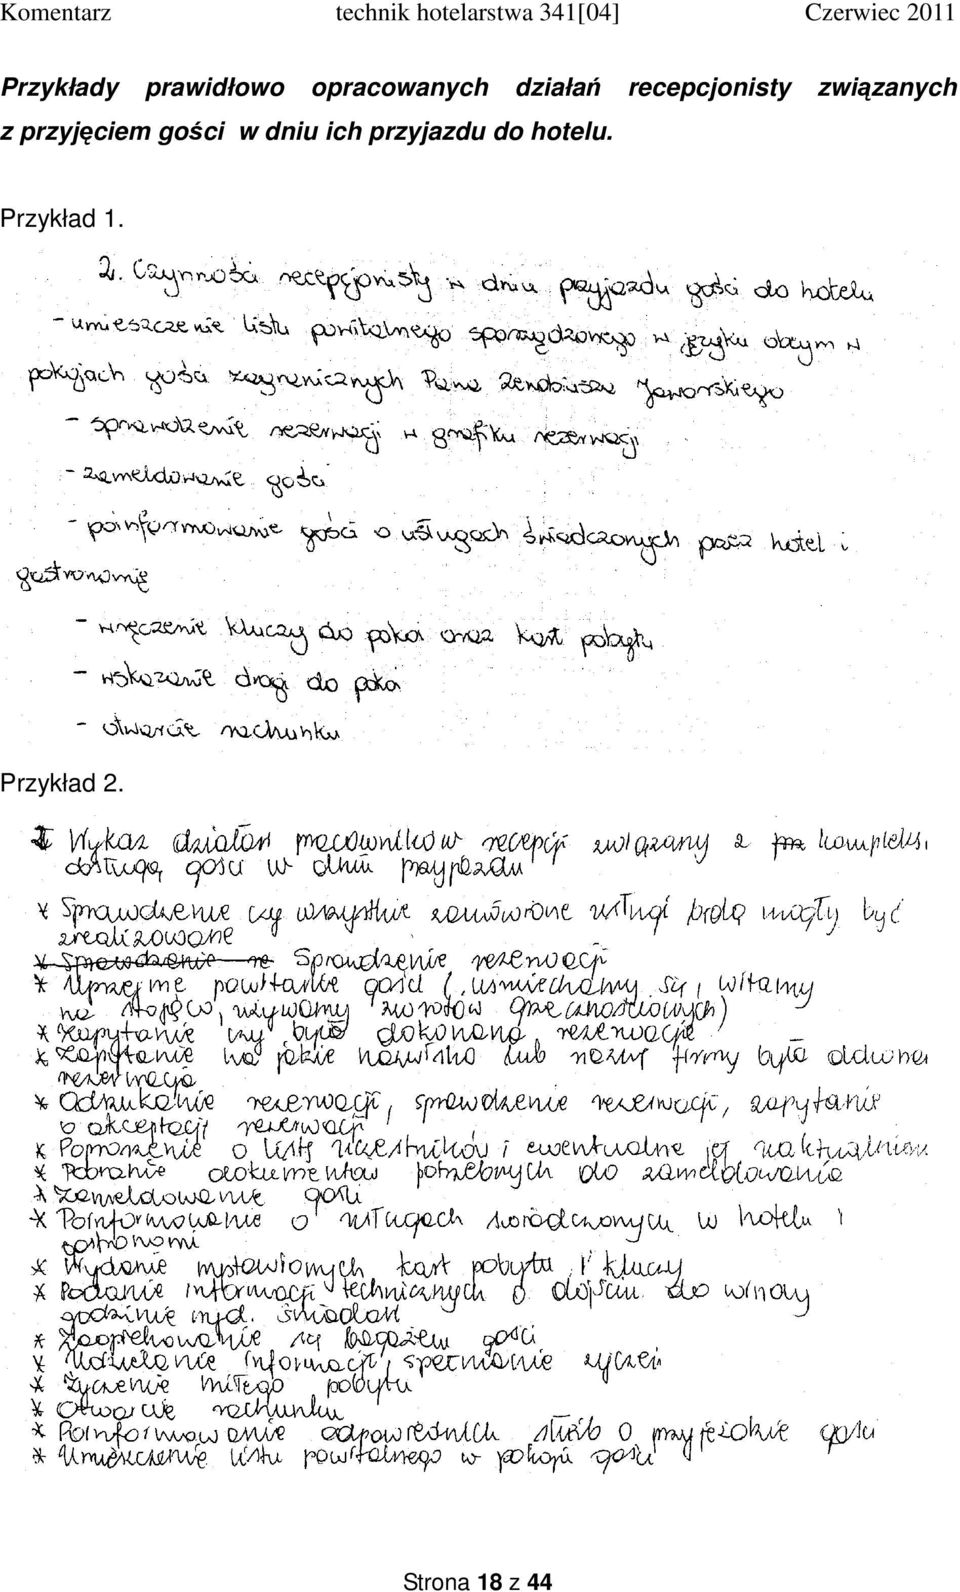 Komentarz technik hotelarstwa 341[04] Czerwiec 2011
Przykłady prawidłowo opracowanych działań recepcjonisty związanych
z przyjęciem gości w dniu ich przyjazdu do hotelu.
Przykład 1.
2. Czynności recepcjonisty w dniu przyjazdu gości do hotelu
- umieszczenie listu powitalnego sporządzonego w języku obcym w
pokojach gości zagranicznych Pana Zenobiusza Jaworskiego
- sprawdzenie rezerwacji w grafiku rezerwacji
- zameldowanie gości
- poinformowanie gości o usługach świadczonych przez hotel i
gastronomię
- wręczenie kluczy do pokoi oraz kart pobytu
- wskazanie drogi do pokoi
- otwarcie rachunku
Przykład 2.
Wykaz działań pracowników recepcji związany z kompleks.
obsługą gości w dniu przyjazdu
* Sprawdzenie czy wszystkie zamówione usługi będą mogły być
zrealizowane
* Sprawdzenie re Sprawdzenie rezerwacji
* Uprzejme powitanie gości (uśmiechamy się, witamy
na stojąco, używamy zwrotów grzecznościowych)
* Zapytanie czy była dokonana rezerwacja
* Zapytanie na jakie nazwisko lub nazwę firmy była
rezerwacja
* Odszukanie rezerwacji, sprawdzenie rezerwacji, zapytanie
o akceptację rezerwacji
* Poproszenie o listę uczestników i ewentualne jej
* Pobranie dokumentów potrzebnych do zameldowania
* Zameldowanie gości
* Poinformowanie o usługach świadczonych w hotelu i
gastronomi
* Wydanie wystawionych kart pobytu i kluczy
* Podanie informacji technicznych o dojściu do windy
godzinie wyd. śniadań
* Zaopiekowanie się bagażem gości
* Udzielanie informacji, spełnianie życzeń
* Życzenie miłego pobytu
* Otwarcie rachunku
* Poinformowanie odpowiednich służb o przyjeździe gości
* Umieszczenie listu powitalnego w pokoju gości
Strona 18 z 44